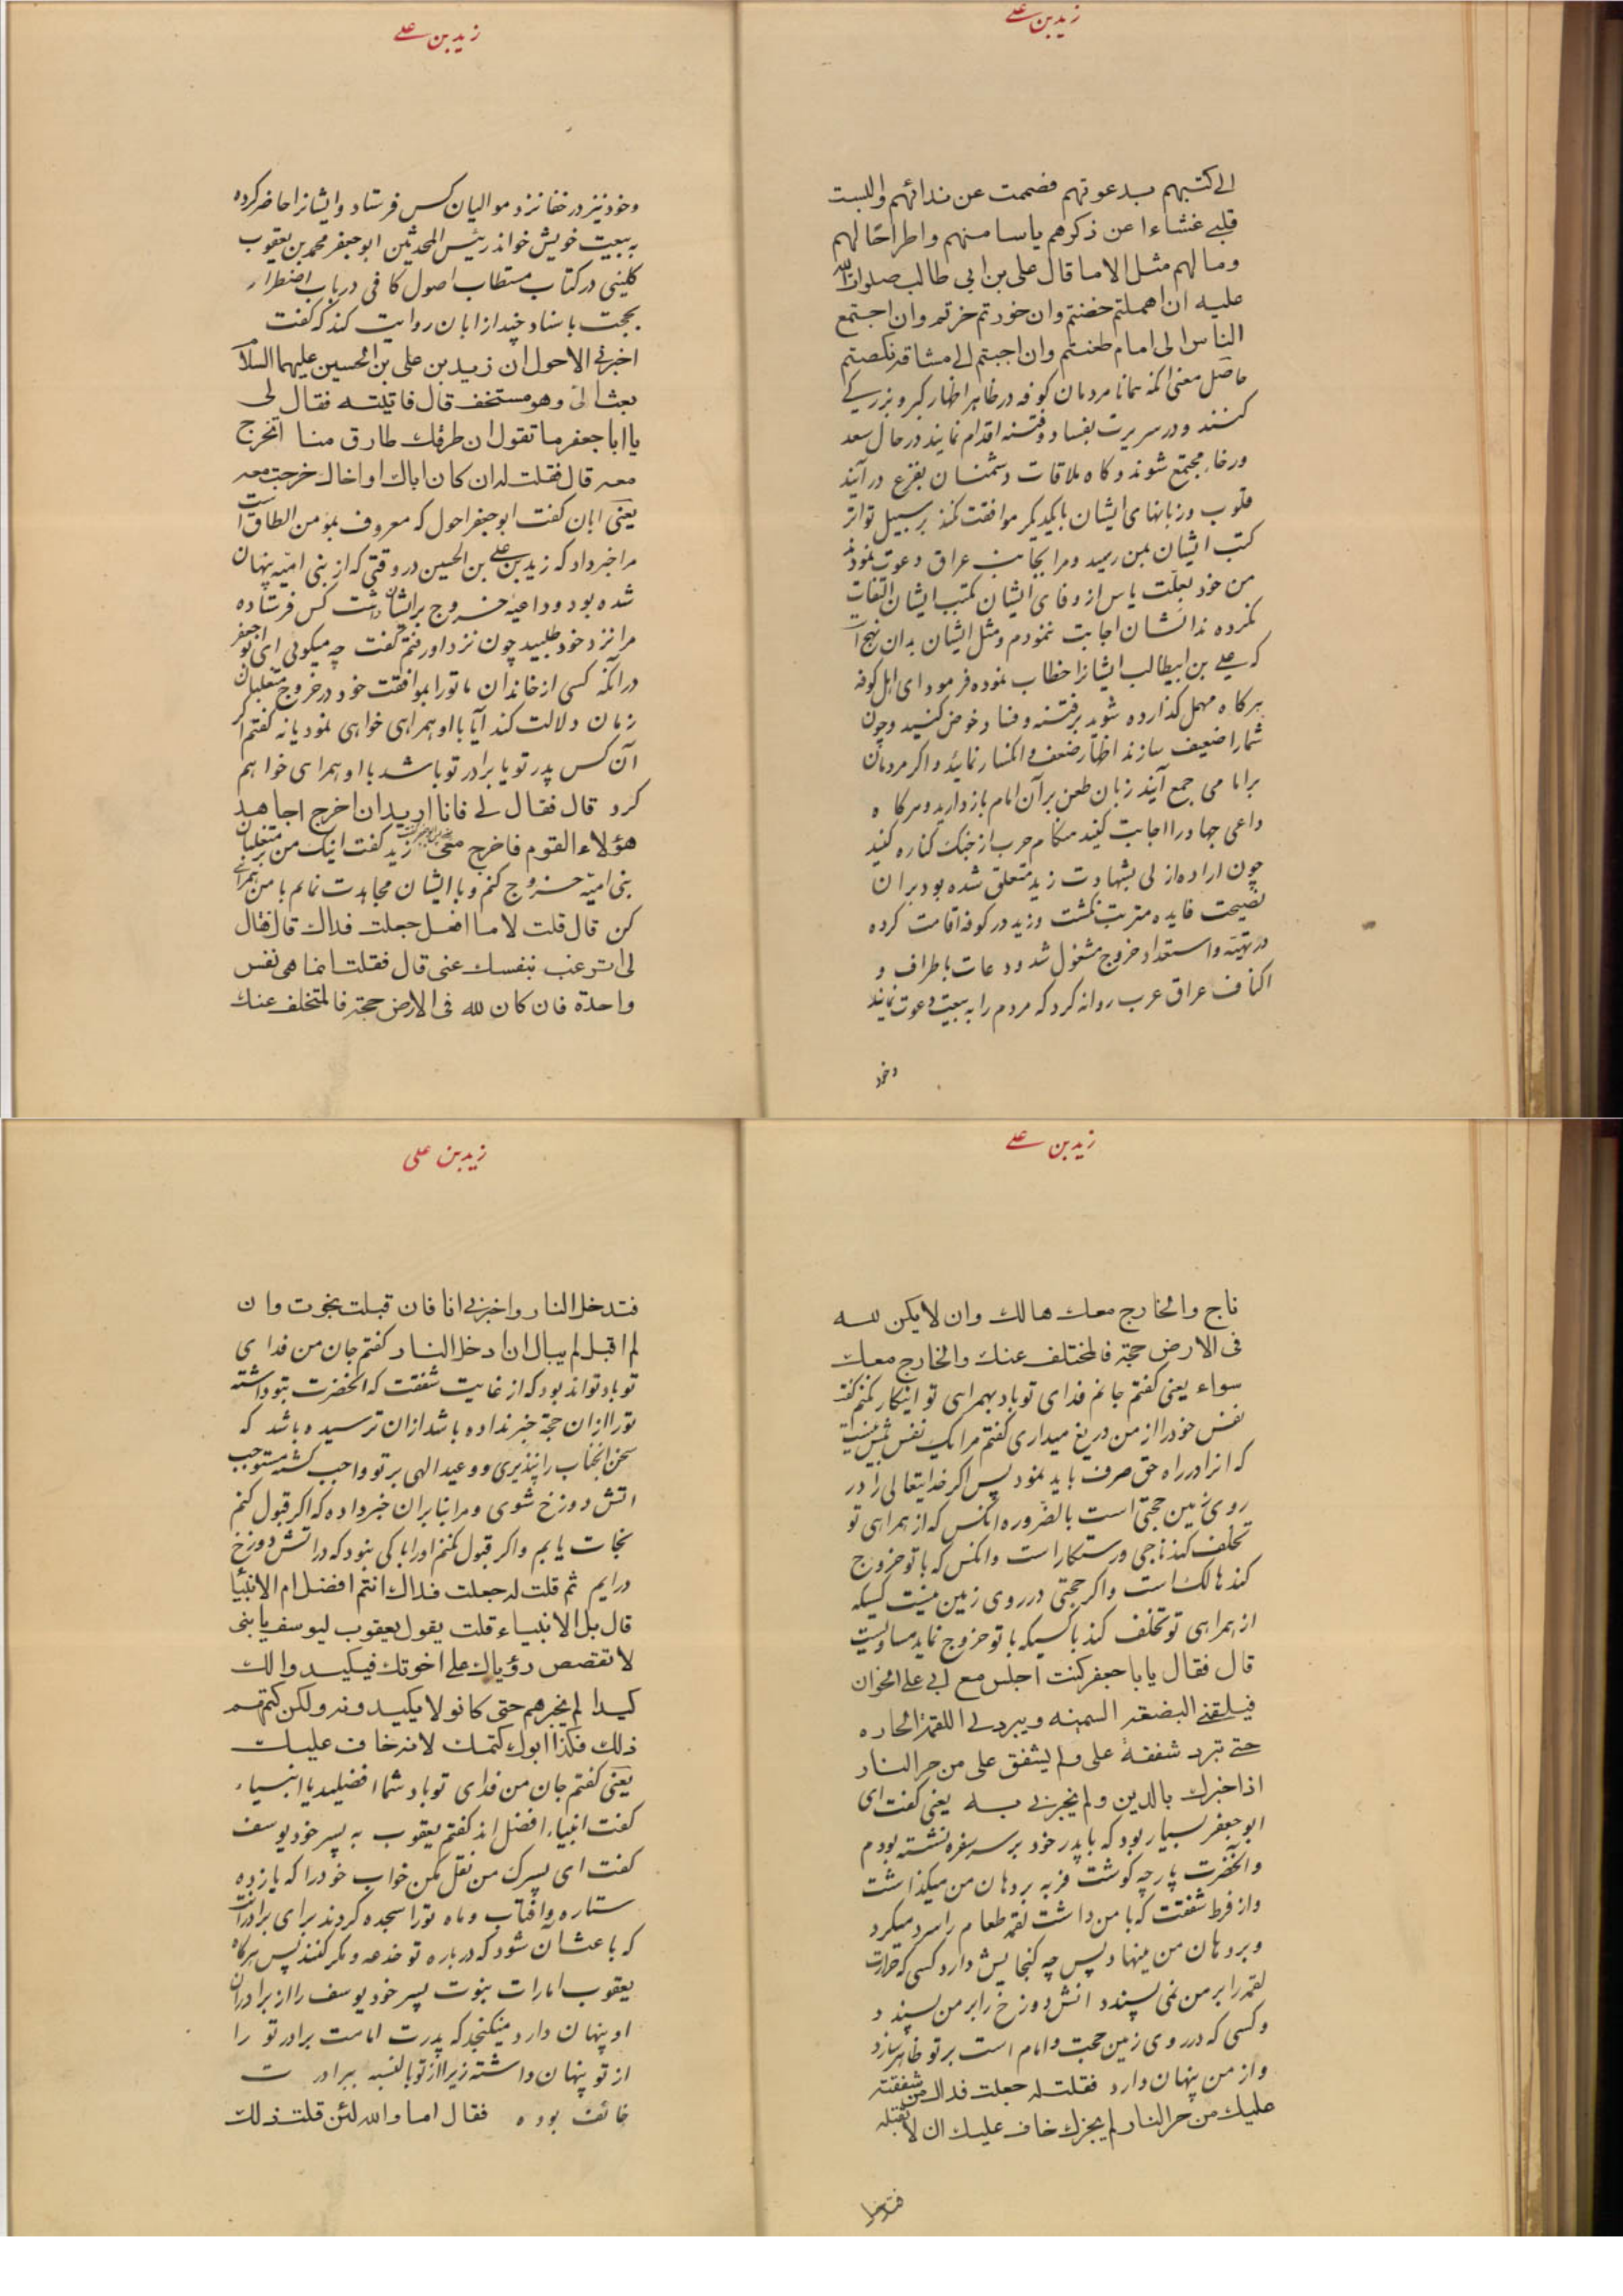 زید بن علی
الی کتبهم بدعوتهم فصممت عن ندائهم والبست
قلبی غشاءا عن ذکرهم یاسا منهم واطراحا لهم
وما لهم مثل الا ما قال علی بن ابی طالب صلوات الله
علیه ان اهملتم خضتم وان خورتم خرتم وان اجتمع
الناس الی امام طعنتم وان اجبتم الی مشاقة نکصتم
حاصل معنی انکه همانا مردمان کوفه در ظاهر اظهار کبر و بزرگی
کنند و در سریرت بفساد و فتنه اقدام نمایند در حال سعد
و رخاء مجتمع شوند و کاه ملاقات دشمنان بفزع در آیند
قلوب و زبانهای ایشان با یکدیکر موافقت نکند بر سبیل تواتر
کتب ایشان بمن رسید و مرا بجانب عراق دعوت نمودند
من خود بعلت یاس از وفای ایشان بکتب ایشان التفات
نکرده ندا ایشان اجابت ننمودم و مثل ایشان بدان نهج است
که علی بن ابیطالب ایشانرا خطاب نموده فرمود ای اهل کوفه
هرکاه مهمل کذارده شوید بر فتنه و فساد خوض کنید و چون
شما را ضعیف سازند اظهار ضعف و انکسار نمائید و اکر مردمان
بر امامی جمع آیند زبان طعن بر آن امام باز دارید و هرکاه
داعی جهاد را اجابت کنید هنکام حرب از جنک کناره کنید
چون اراده ازلی بشهادت زید متعلق شده بود بر ان
نصیحت فایده مترتب نکشت و زید در کوفه اقامت کرده
در تهیه و استعداد خروج مشغول شد و دعات باطراف و
اکناف عراق عرب روانه کرد که مردم را به بیعت دعوت نمایند
وخود
زید بن علی
وخود نیز در خفا نزد موالیان کس فرستاد و ایشانرا حاضر کرده
به بیعت خویش خواند رئیس المحدثین ابو جعفر محمد بن یعقوب
کلینی در کتاب مستطاب اصول کافی در باب اضطرار
بحجت باسناد چند از ابان روایت کند که کفت
اخبرنی الاحول ان زید بن علی بن الحسین علیهما السلام
بعث الی وهو مستخف قال فاتیته فقال لی
یا ابا جعفر ما تقول ان طرقک طارق منا اتخرج
معه قال فقلت له ان کان اباک او اخاک خرجت معه
یعنی ابان کفت ابو جعفر احول که معروف بمؤمن الطاق است
مرا خبر داد که زید بن علی بن الحسین در وقتی که از بنی امیه پنهان
شده بود و داعیه خروج بر ایشان داشت کس فرستاده
مرا نزد خود طلبید چون نزد او رفتم کفت چه میکوئی ای ابو جعفر
در آنکه کسی از خاندان ما تورا بموافقت خود در خروج متغلبان
زمان دلالت کند آیا با او همراهی خواهی نمود یا نه کفتم اکر
آن کس پدر تو یا برادر تو باشد با او همراهی خواهم
کرد قال فقال لی فانا ارید ان اخرج اجاهد
هؤلاء القوم فاخرج معی زید کفت اینک من بر متغلبان
بنی امیه خروج کنم و با ایشان مجاهدت نمایم با من همراهی
کن قال قلت لا ما افعل جعلت فداک قال فقال
لی اترغب بنفسک عنی قال فقلت انما هی نفس
واحدة فان کان لله فی الارض حجة فالمتخلف عنک
زید بن علی
ناج والخارج معک هالک وان لا یکن لله
فی الارض حجة فالمختلف عنک والخارج معک
سواء یعنی کفتم جانم فدای تو باد بهمراهی تو اینکار نکنم کفت
نفس خود را از من دریغ میداری کفتم مرا یک نفس بیش نیست
که انرا در راه حق صرف باید نمود پس اکر خدایتعالی را در
روی زمین حجتی است بالضروره انکس که از همراهی تو
تخلف کند ناجی و رستکار است و انکس که با تو خروج
کند هالک است و اکر حجتی در روی زمین نیست کسیکه
از همراهی تو تخلف کند با کسیکه با تو خروج نماید مساویست
قال فقال یابا جعفر کنت اجلس مع ابی علی الخوان
فیلقمنی البضعة السمینه ویبرد لی اللقمة الحاره
حتی تبرد شفقة علی ولم یشفق علی من حر النار
اذا خبرک بالدین ولم یخبرنی به یعنی کفت ای
ابو جعفر بسیار بود که با پدر خود بر سر سفره نشسته بودم
و انحضرت پارچه کوشت فربه بر دهان من میکذاشت
و از فرط شفقت که با من داشت لقمه طعام را سرد میکرد
و بر دهان من مینهاد پس چه کنجایش دارد کسی که حرارت
لقمه را بر من نمی پسندد اتش دوزخ را بر من پسندد
و کسی که در روی زمین حجت و امام است بر تو ظاهر سازد
و از من پنهان دارد فقلت له جعلت فداک من شفقته
علیک من حر النار لم یخبرک خاف علیک ان لا تقبله
فتدخل
زید بن علی
فتدخل النار واخبرنی انا فان قبلت نجوت وان
لم اقبل لم یبال ان ادخل النار کفتم جان من فدای
تو باد تواند بود که از غایت شفقت که انحضرت بتو داشته
تورا از ان حجة خبر نداده باشد از ان ترسیده باشد که
سخن انجناب را نپذیری و وعید الهی بر تو واجب کشته مستوجب
اتش دوزخ شوی و مرا بنابر ان خبر داده که اکر قبول کنم
نجات یابم و اکر قبول نکنم اورا باکی نبود که در اتش دوزخ
درایم ثم قلت له جعلت فداک انتم افضل ام الانبیا
قال بل الانبیاء قلت یقول یعقوب لیوسف یا بنی
لا تقصص رؤیاک علی اخوتک فیکیدوا لک
کیدا لم یخبرهم حتی کانو لا یکیدونه ولکن کتمهم
ذلک فکذا ابوک کتمک لانه خاف علیک
یعنی کفتم جان من فدای تو باد شما افضلید یا انبیاء
کفت انبیاء افضل اند کفتم یعقوب به پسر خود یوسف
کفت ای پسرک من نقل مکن خواب خود را که یازده
ستاره و آفتاب و ماه تورا سجده کردند برای برادرانت
که باعث ان شود که درباره تو خدعه و مکر کنند پس هرکاه
یعقوب امارات نبوت پسر خود یوسف را از برادران
او پنهان دارد میکنجد که پدرت امامت برادر تو را
از تو پنهان داشته زیرا از تو بالنسبه ببرادرت
خائف بوده فقال اما والله لئن قلت ذلک